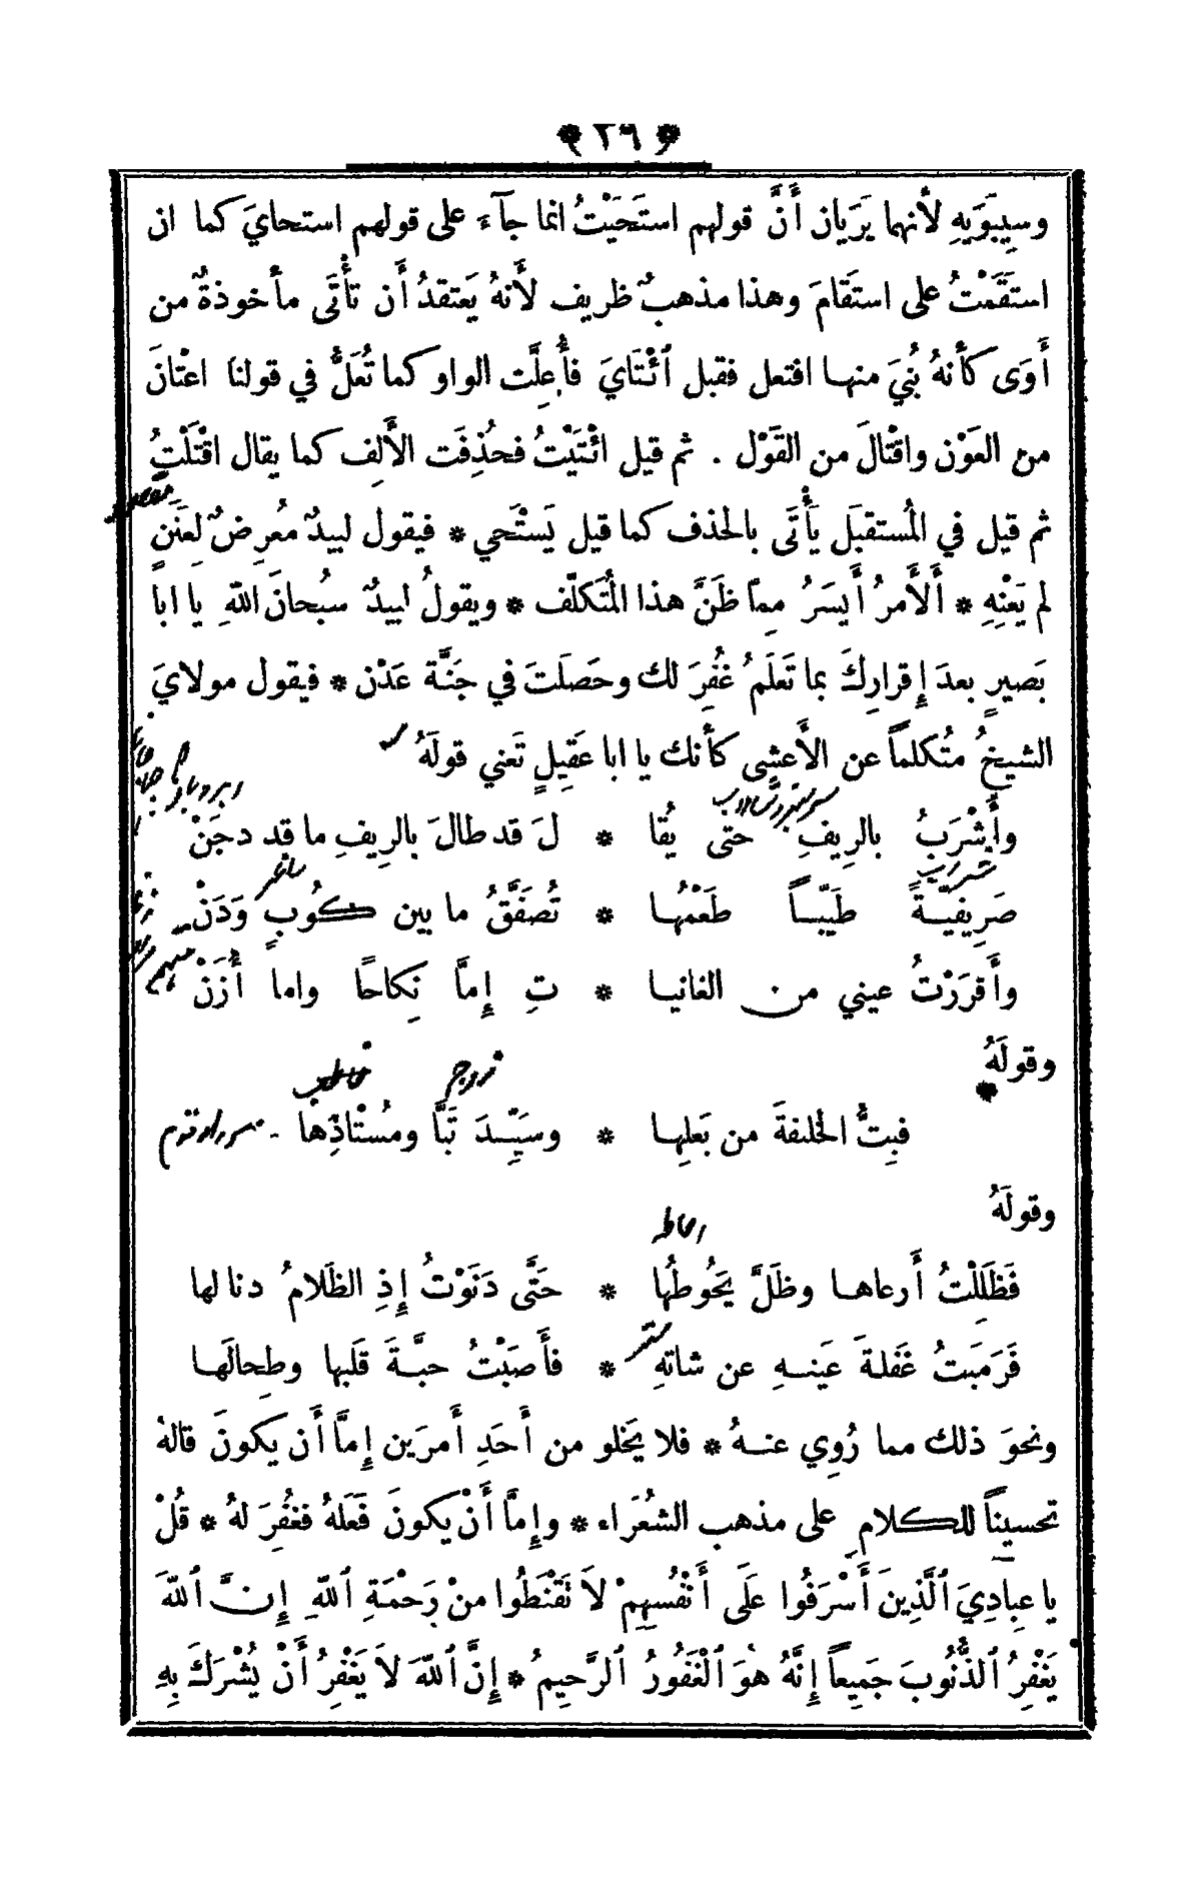 ❋ ٢٦ ❋
وسِيبَوَيهِ لأنهما يَرَيان أَنَّ قولهم استَحَيْتُ انما جآءَ على قولهم استحايَ كما ان
استَقَمْتُ على استَقامَ وهذا مذهبٌ ظريف لأَنهُ يَعتقدُ أَن تأْتَى مأخوذةٌ من
أَوَى كأَنهُ بُنيَ منها افتعل فقيل ٱئْتَايَ فأُعِلَّت الواو كما تُعَلُّ في قولنا اعْتانَ
من العَوْن واقْتالَ من القَوْل . ثم قيل ائْتَيْتُ فحُذِفَت الأَلِف كما يقال اقْتَلْتُ
ثم قيل في المُستقبَل يَأْتَى بالحذف كما قيل يَسْتَحي * فيقول لبيدٌ مُعرِضٌ لِعَنَنٍ
لم يَعْنِهِ * أَلأَمرُ أَيسَرُ مِمّا ظَنَّ هذا المُتَكلّف * ويقولُ لبيدٌ سبُحانَ اللّهِ يا ابا
بَصيرٍ بعدَ إِقرارِكَ بما تَعلَمُ غُفِرَ لك وحَصلَتَ في جَنَّة عَدْن * فيقول مولايَ
الشيخُ مُتكلماً عن الأَعشى كأَنك يا ابا عَقِيلٍ تَعني قولَهُ
وأَشْرَبُ بالرِيفِ حتى يُقا * لَ قد طالَ بالرِيفِ ما قد دجَنْ
صَرِيفيّةً طَيّباً طَعْمُها * تُصَفَّقُ ما بين كُوبٍ وَدَنْ
وأَقرَرْتُ عيني من الغانيا * تِ إِمَّا نِكاحًا واما أُزَنْ
وقولَهُ
فبِتُّ الخليفةَ من بَعلِها * وسَيّدَ تَبَّا ومُسْتَاذِها
وقولَهُ
فَظَلِلْتُ أَرعاها وظَلَّ يَحُوطُها * حَتَّى دَنَوْتُ إِذِ الظَلامُ دنا لها
فَرَمَيتُ غَفلةَ عَينهِ عن شاتهِ * فأَصَبْتُ حبَّةَ قَلبها وطِحالَها
ونحوَ ذلك مما رُوِي عنهُ * فلا يَخلو من أَحَدِ أَمرَين إِمَّا أَن يكونَ قالهُ
تحسيناً للكلامِ على مذهب الشُعَراء * وإِمَّا أَنْ يكونَ فَعَلَهُ فغُفِرَ لهُ * قُلْ
يا عِبادِيَ ٱلَّذِينَ أَسْرَفُوا عَلَى أَنْفُسِهِمْ لاَ تَقْنَطُوا منْ رَحْمَةِ ٱللّهِ إِنَّ ٱللّهَ
يَغْفِرُ ٱلذُّنُوبَ جَمِيعاً إِنَّهُ هُوَ ٱلْغَفُورُ ٱلرَّحِيمُ * إِنَّ ٱللّهَ لاَ يَغْفِرُ أَنْ يُشْرَكَ بِهِ